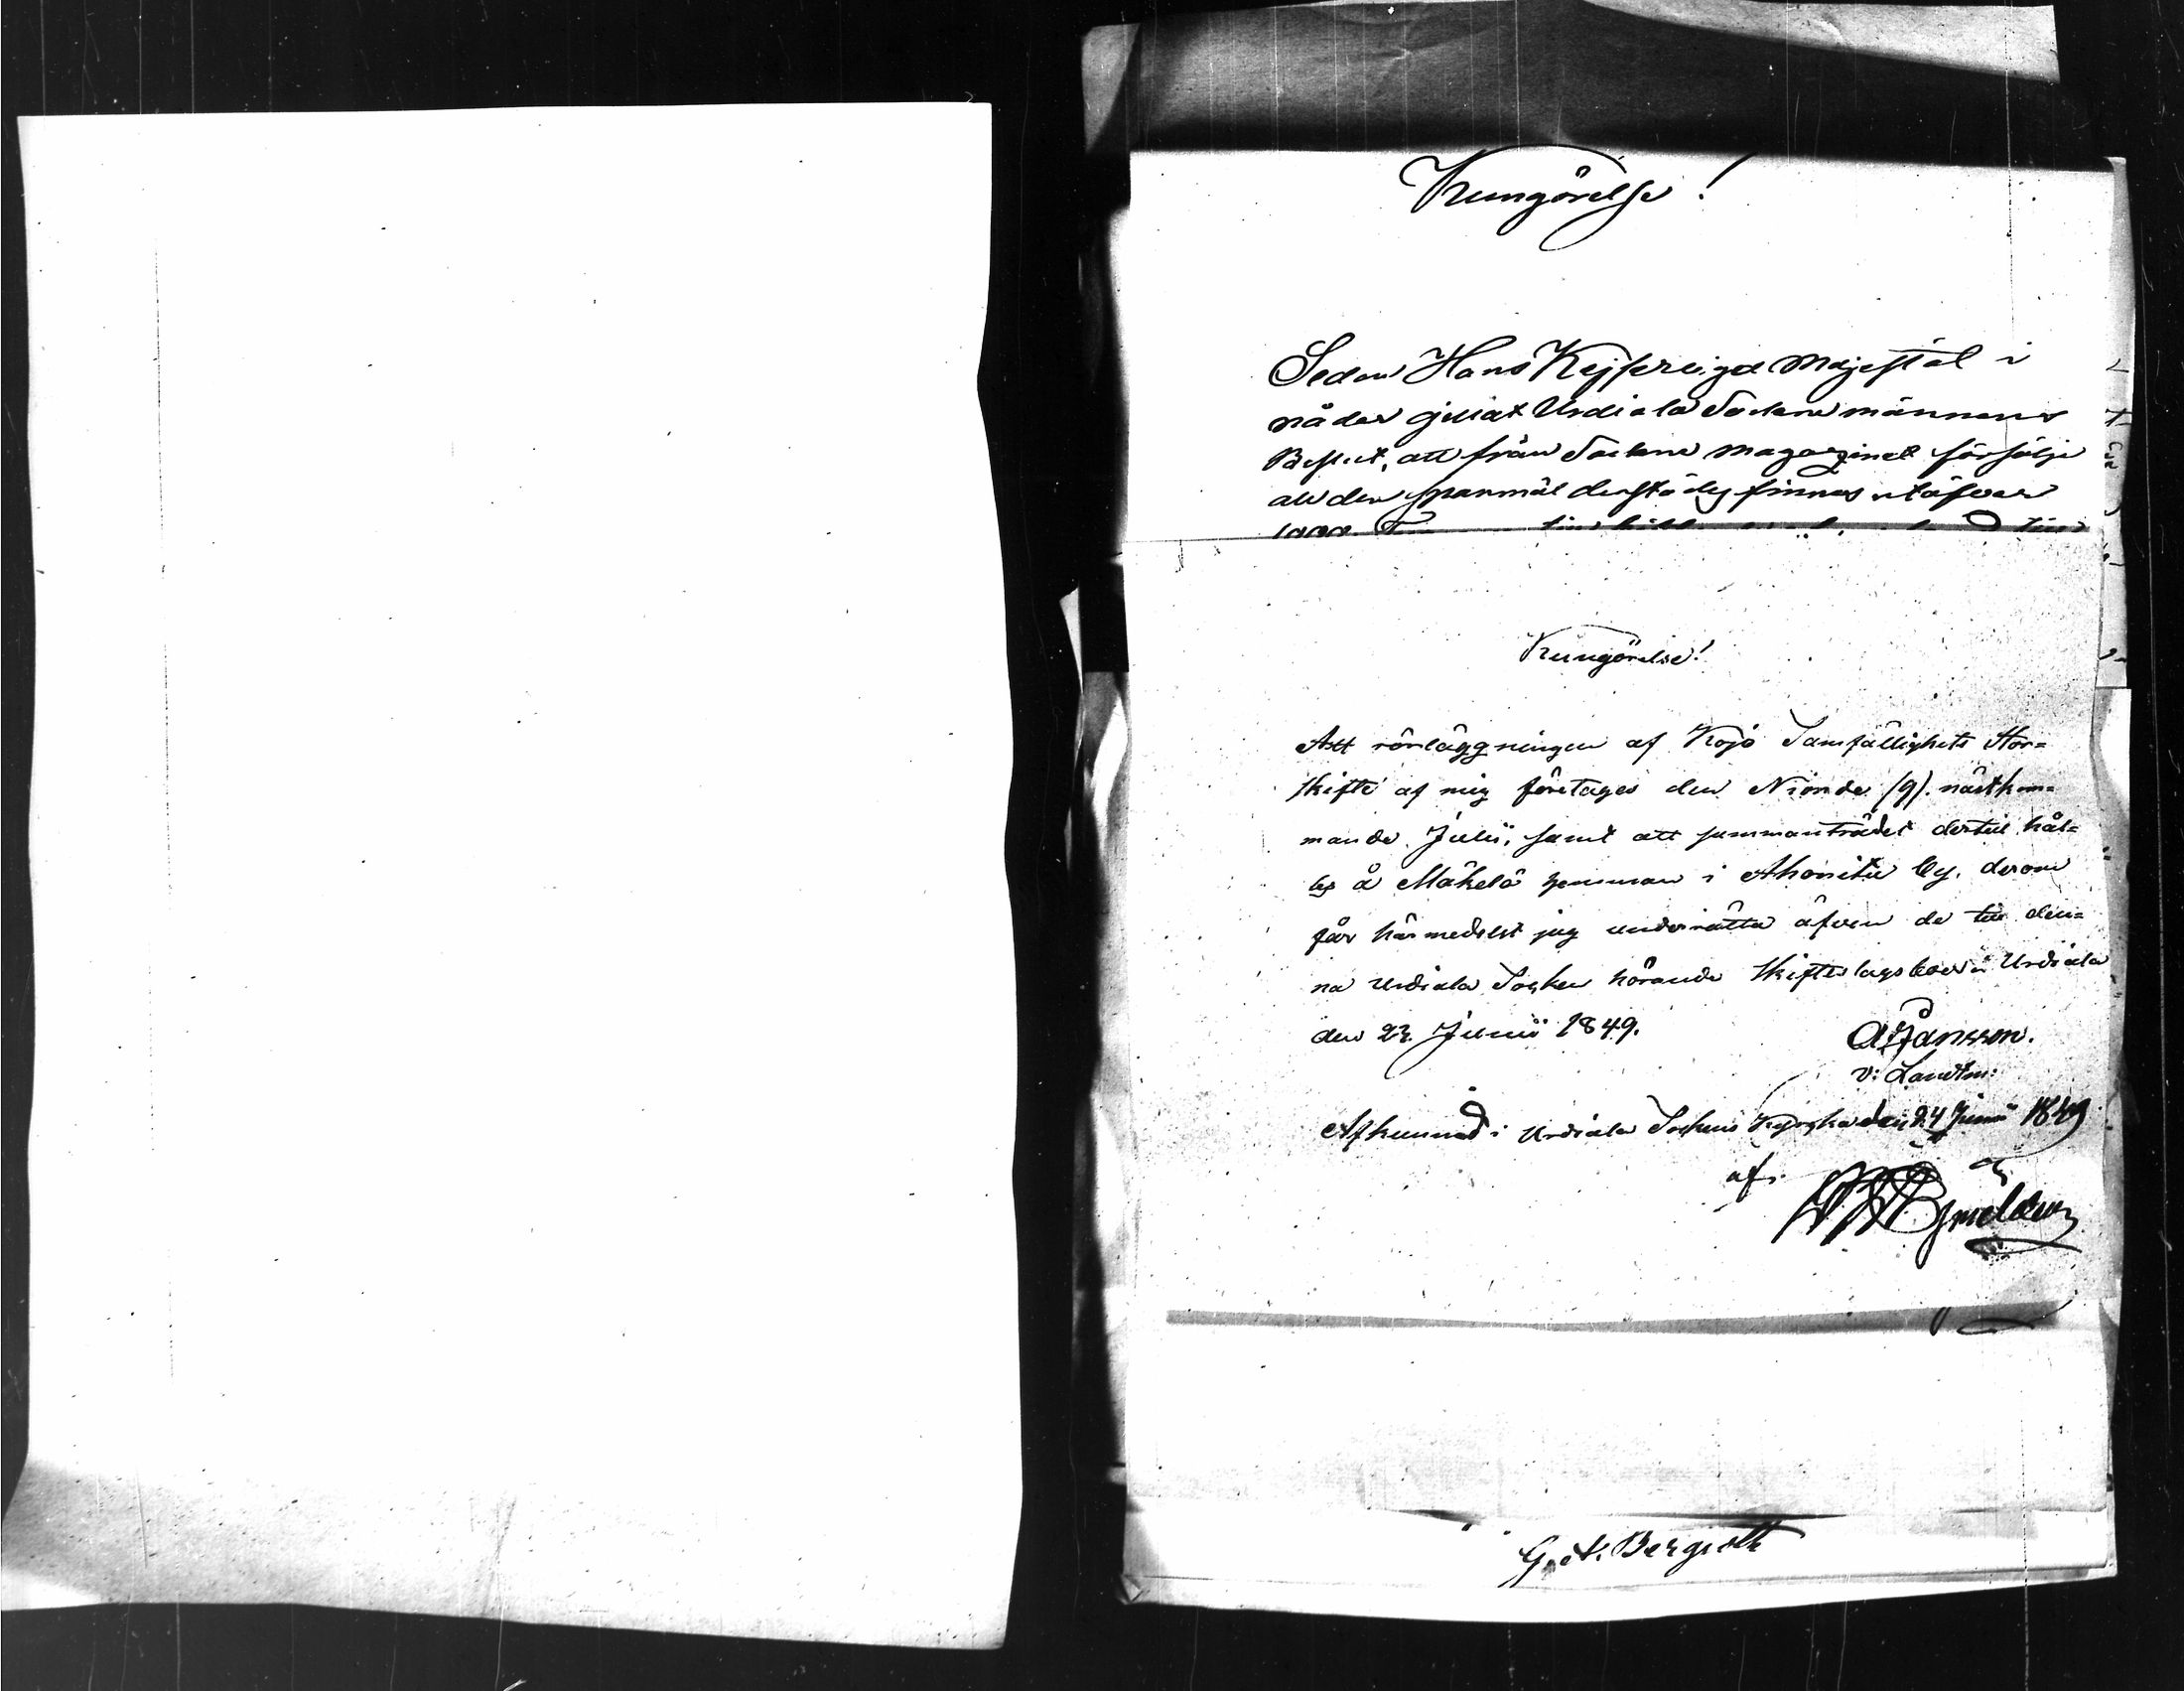 Kungörelse!
Sedan Hans Kejserliga Majestät i
nåder gillat Urdiala Sockenmännens
Beslut, att från Sockne magazinet försälja
all den spanmål derstädes finnes utöfver
1000
Kungörelse!
Att rörläggningen af Kojo Samfällighets Stor=
skifte af mig företages den Nionde /9/. nästkom=
mande Julii, samt att sammanträdet dertill hål=
les å Mäkelä hemman i Ahonitu by, derom
får härmedelst jag underrätta äfven de till den=
na Urdiala Socken hörande skifteslagsboer. Urdiala
den 23. Junii 1849.
A Jansson.
v: Landtm:
Afkunnad i Urdiala Sockens Kyrcka den 24 Junii 1849
af.
Gust. Bergroth